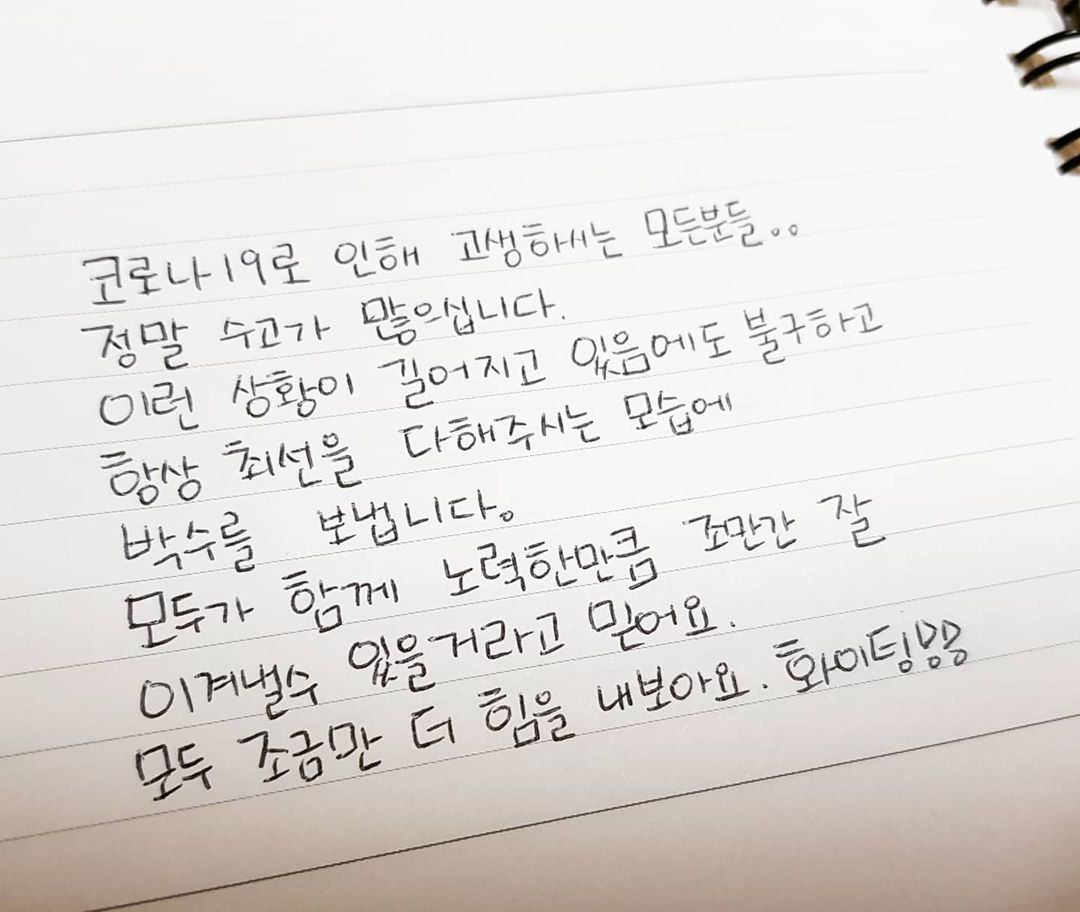 코로나19로 인해 고생하시는 모든분들..
정말 수고가 많으십니다.
이런 상황이 길어지고 있음에도 불구하고
항상 최선을 다해주시는 모습에
박수를 보냅니다.
모두가 함께 노력한만큼 조만간 잘
이겨낼수 있을거라고 믿어요.
모두 조금만 더 힘을 내보아요. 화이팅!!